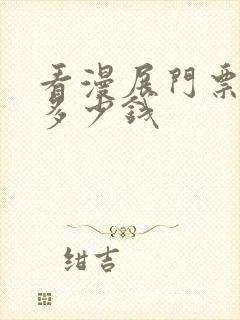 看漫展門票
多少錢
紺吉